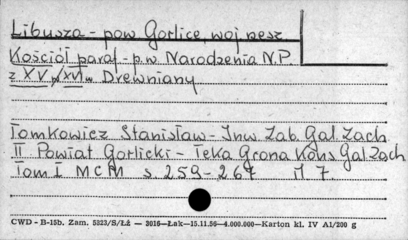 Libusza - pow Gorlice, woj rzesz
Kościół paraf. - p.w. Narodzenia N.P.
z XV/XVI w Drewniany
Tomkowicz Stanisław - Inw Zab Gal Zach
II Powiat Gorlicki - Teka Grona Kons Gal Zach
Tom I MCM s. 259-267 il 7.
CWD - B-15b. Zam. 5323/S/Łź — 3016—Łak—15.11.56—4.000.000—Karton kl. IV A1/200 g